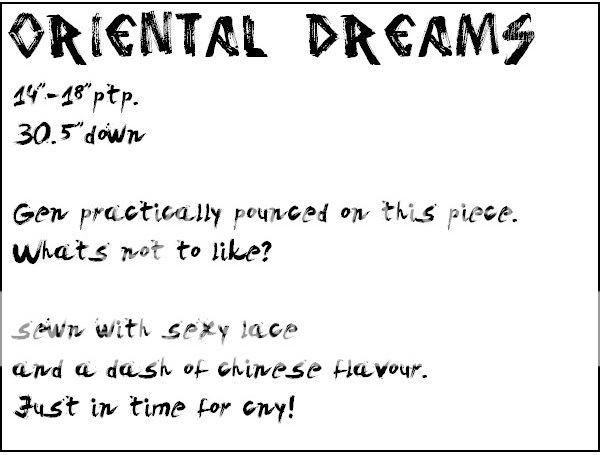 ORIENTAL DREAMS
14"-18"ptp.
30.5"down
Gen practically pounced on this piece.
Whats not to like?
sewn with sexy lace
and a dash of chinese flavour.
Just in time for cny!